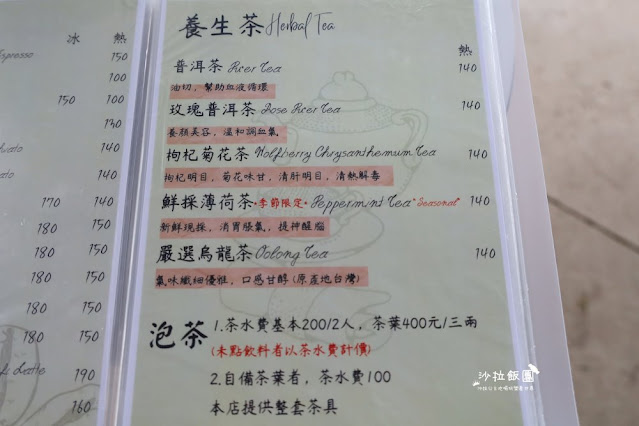 冰 熱
Espresso 150
100
150 100
130
150
170 140
180 150
180 150
180 150
180 150
Latte 190
160
養生茶 Herbal Tea
熱
普洱茶 Puer Tea 140
油切，幫助血液循環
玫瑰普洱茶 Rose Puer Tea 140
養顏美容，溫和調血氣
枸杞菊花茶 Wolfberry Chrysanthemum Tea 140
枸杞明目，菊花味甘，清肝明目，清熱解毒
鮮採薄荷茶*季節限定* Peppermint Tea*Seasonal* 140
新鮮現採，消胃脹氣，提神醒腦
嚴選烏龍茶 Oolong Tea 140
氣味纖細優雅，口感甘醇(原產地台灣)
泡茶 1.茶水費基本200/2人，茶葉400元/三兩
(未點飲料者以茶水費計價)
2.自備茶葉者，茶水費100
本店提供整套茶具
沙拉飯團